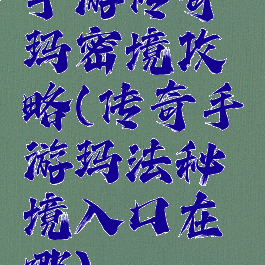 手游传奇
玛密境攻
略(传奇手
游玛法秘
境入口在
哪)